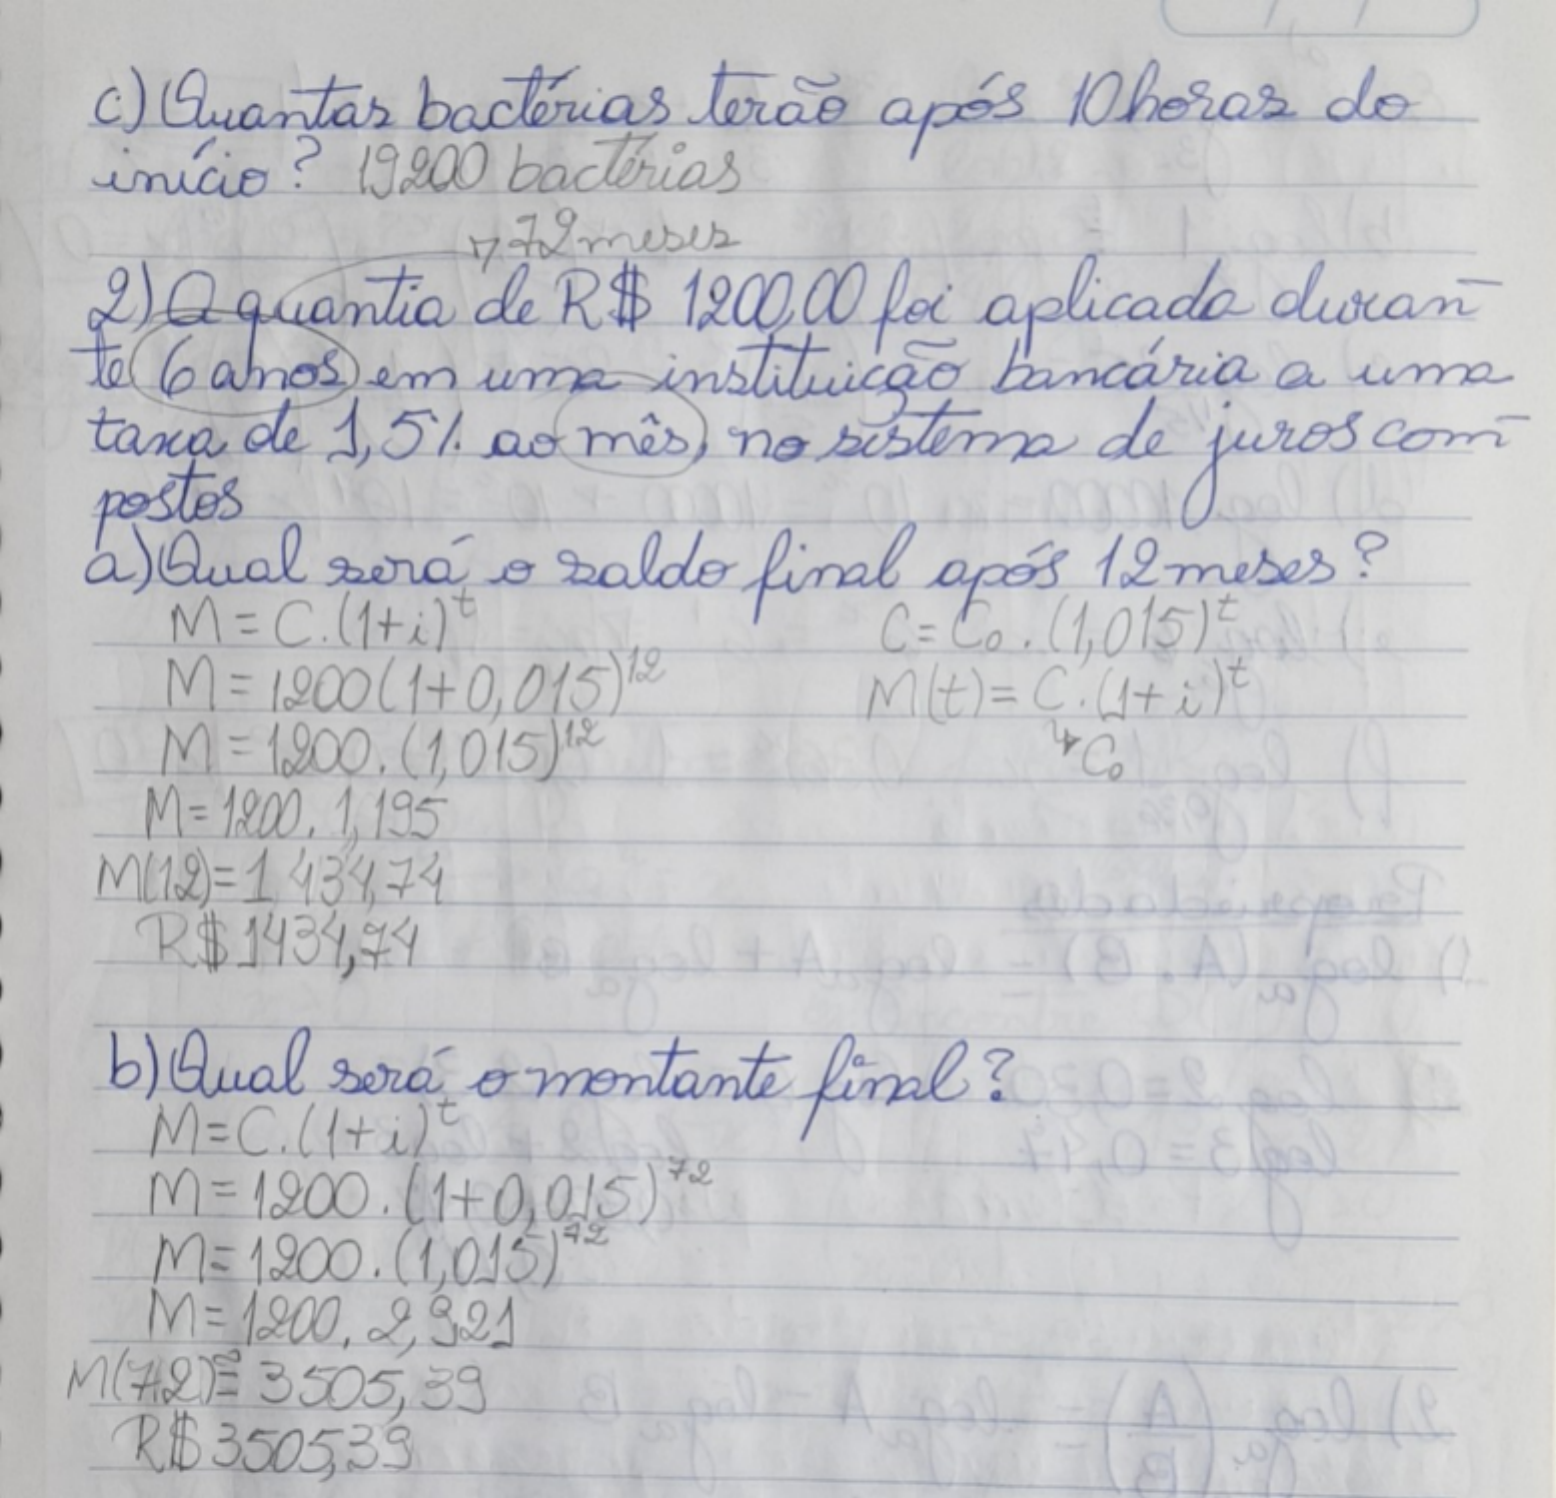 c) Quantas bactérias terão após 10 horas do
início? 19200 bactérias
→ 72 meses
2) A quantia de R$ 1200,00 foi aplicada duran-
te 6 anos em uma instituição bancária a uma
taxa de 1,5% ao mês, no sistema de juros com-
postos
a) Qual será o saldo final após 12 meses?
M = C.(1+i)^t
M = 1200(1+0,015)^12
M = 1200.(1,015)^12
M = 1200. 1,195
M(12) = 1 434,74
R$ 1434,74
C = C₀.(1,015)^t
M(t) = C.(1+i)^t
↳ C₀
b) Qual será o montante final?
M = C.(1+i)^t
M = 1200.(1+0,015)^72
M = 1200.(1,015)^72
M = 1200. 2,921
M(72) ≅ 3505,39
R$ 3505,39